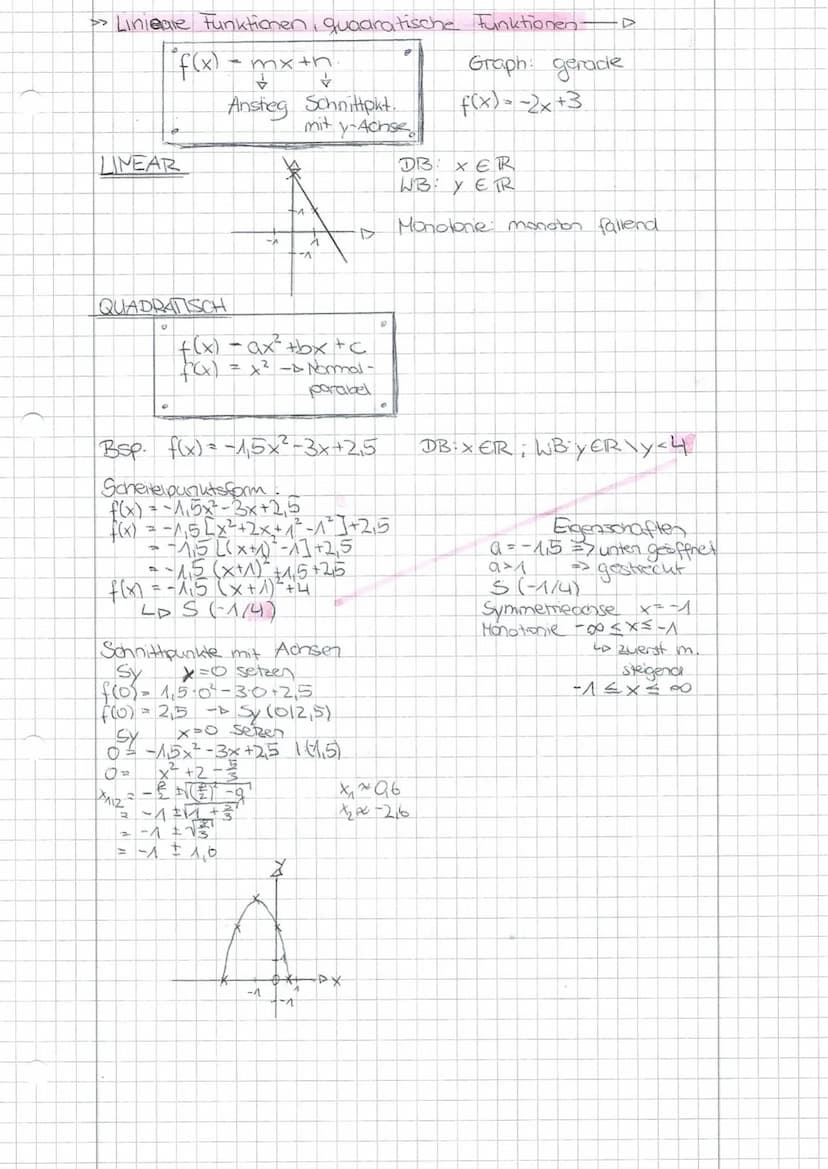 >> Lineare Funktionen, quadratische Funktionen
f(x) = mx + n
Anstieg Schnittpkt.
mit y-Achse
Graph: gerade
f(x) = -2x+3
LINEAR
DB: x ∈ ℝ
WB: y ∈ ℝ
Monotonie: monoton fallend
1
-1 1
-1
QUADRATISCH
f(x) = ax² + bx + c
f(x) = x² → Normal-
parabel
Bsp. f(x) = -1,5x² - 3x + 2,5 DB: x ∈ ℝ ; WB: y ∈ ℝ \ y < 4
Scheitelpunktsform:
f(x) = -1,5x² - 3x + 2,5
f(x) = -1,5 [x² + 2x + 1² - 1²] + 2,5
= -1,5 [(x+1)² - 1] + 2,5
= -1,5 (x+1)² + 1,5 + 2,5
f(x) = -1,5 (x+1)² + 4
↳ S (-1/4)
Eigenschaften
a = -1,5 => unten geöffnet
a > 1 => gestreckt
S (-1/4)
Symmetrieachse x = -1
Monotonie -∞ ≤ x ≤ -1
↳ zuerst m.
steigend
-1 ≤ x ≤ ∞
Schnittpunkte mit Achsen
Sy x = 0 setzen
f(0) = 1,5·0² - 3·0 + 2,5
f(0) = 2,5 → Sy (0/2,5)
Sy x = 0 setzen
0 = -1,5x² - 3x + 2,5 | (-1,5)
0 = x² + 2 - 5/3
x1/2 = -p/2 ± √((p/2)² - q)
= -1 ± √(1 + 5/3)
= -1 ± √(8/3)
= -1 ± 1,6
x₁ ≈ 0,6
x₂ ≈ -2,6
y
1
x
-1 0 1
-1